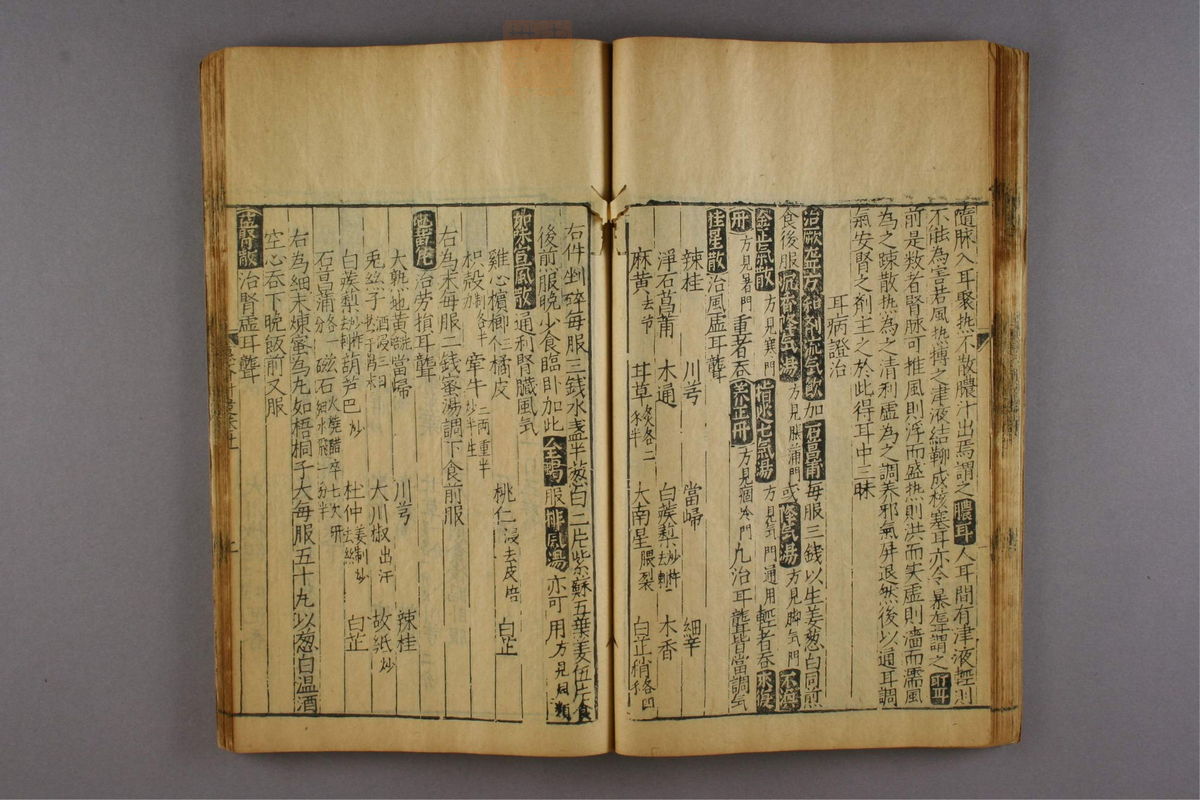 隨脉入耳聚热不散膿汁出焉謂之膿耳人耳間有津液輕則
不能為害若風热搏之津液結聊成核塞耳亦令暴聾謂之耵耳
前是数者腎脉可推風則浮而盛热則洪而失虛則濇而濡風
為之踈散热為之清利虛為之調养邪氣屏退然後以通耳調
氣安腎之剤主之於此得耳中三昧
耳病證治
治厥聾方和剤流气飲加石菖莆每服三錢以生姜葱白同煎
食後服沉香降气湯方見脹蒲門或降气湯方見脚气門不換
金正氣散方見寒門指迷七气湯方見气門通用輕者吞來復
丹方見暑門重者吞养正丹方見痼冷門凢治耳聾皆當調气
桂星散治風虛耳聾
辣桂 川芎 當歸 細辛
浮石菖莆 木通 白蒺梨炒杵去刺 木香
麻黄去节 甘草炙各二
大南星煨裂 白芷稍各四
右件剉碎每服三錢水盞半葱白二片紫蘇五葉姜伍片食
後煎服晚少食臨卧加此全蝎服排風湯亦可用方見風類
加味宣風散通利腎臟風气
雞心檳榔二个橘皮 桃仁浸去皮焙 白芷
枳殻 牽牛二兩重半炒半生
右為末每服二錢蜜湯調下食前服
治劳損耳聾
大熟地黃洗 當歸 川芎 辣桂
兎絲子酒浸三日 大川椒出汗 故紙炒
白蒺梨炒杵去刺 葫芦巴炒 杜仲姜制炒去絲 白芷
石菖蒲各一分 磁石火燒醋卒七次研細水飛一分半
右為細末煉蜜為丸如梧桐子大每服五十丸以葱白温酒
空心吞下晩飯前又服
治腎虛耳聾